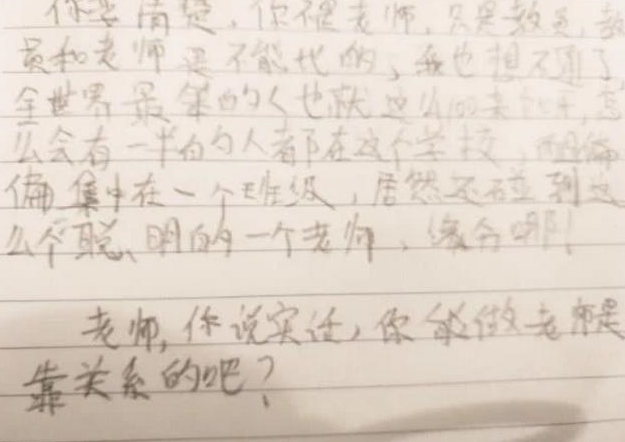 你要清楚，你不是老师，只是教员，教
员和老师是不能比的，我也想不通了，
全世界最笨的人也就这么，怎
么会有一半的人都在这个学校，偏
偏集中在一个班级，居然还碰到这
么个聪明的一个老师，缘分啊！
老师，你说实话，你能做老师是
靠关系的吧？